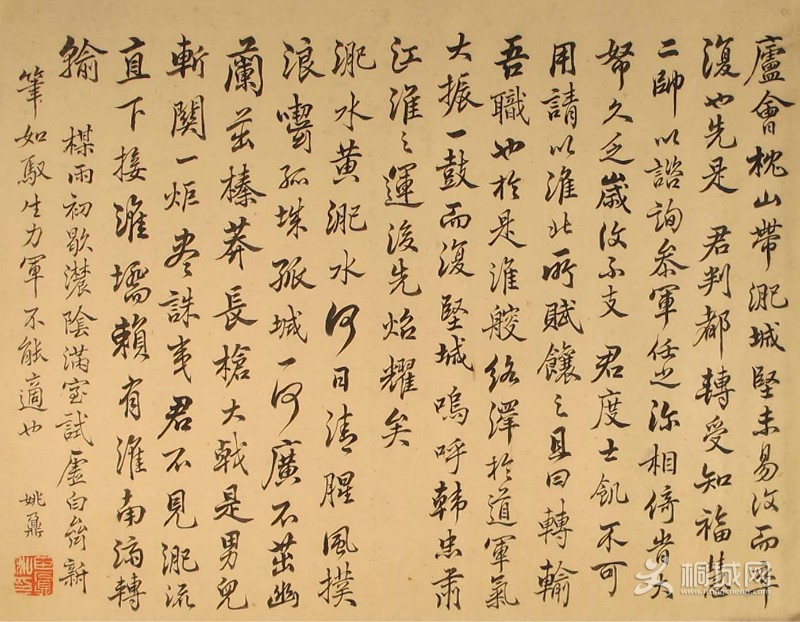 廬會枕山帶淝城堅未易攻而卒
復也先是 君判都轉受知福
二帥以諮詢參軍任之深相倚肯大
帑久乏歲攻不支 君度士飢不可
用請以淮北所賦饟之且曰轉輸
吾職也於是淮艘絡澤於道軍氣
大振一鼓而復堅城嗚呼韓忠肅
江淮之運後先炤耀矣
淝水黃淝水何日清腥風撲
浪嚼孤城孤城一何廣不茁幽
蘭茁榛莽長槍大戟是男兒
斬關一炬盡誅夷君不見淝流
直下接淮壖賴有淮南滿轉
輸 楳雨初歇濃陰滿室試虛白齋新
筆如馭生力軍不能適也
姚鼐
桐城网